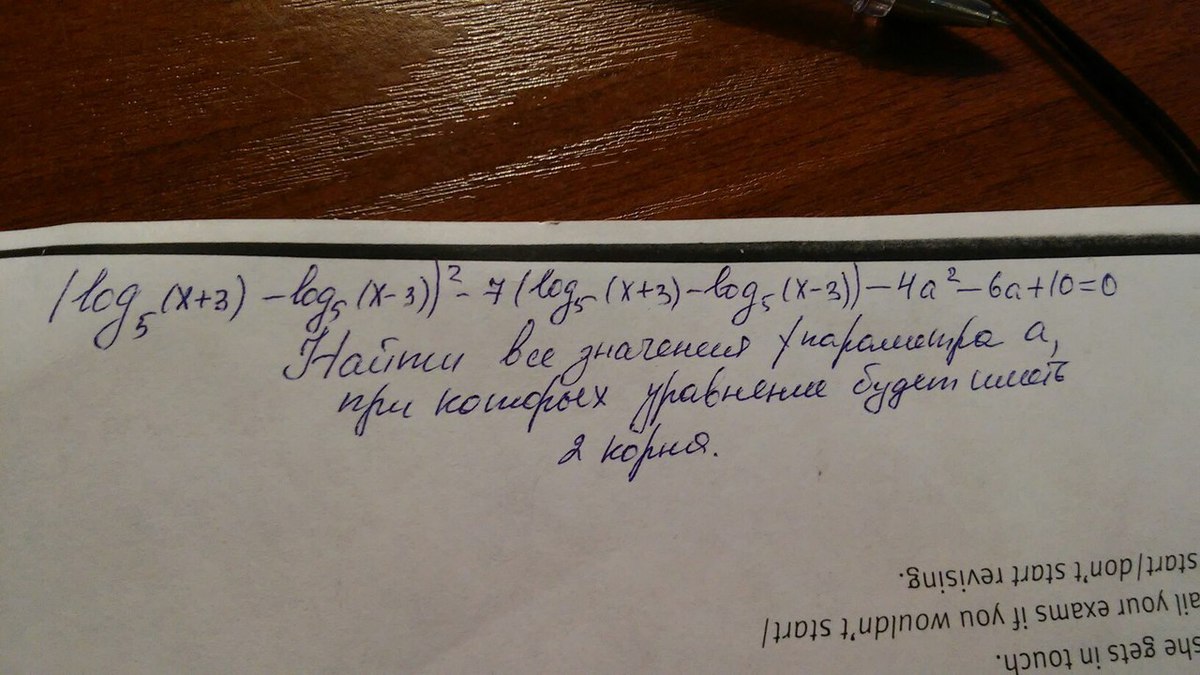 (log₅(x+3) - log₅(x-3))² - 7(log₅(x+3) - log₅(x-3)) - 4a² - 6a + 10 = 0
Найти все значения параметра a,
при которых уравнение будет иметь
2 корня.
she gets in touch.
ail your exams if you wouldn't start/
start/don't start revising.